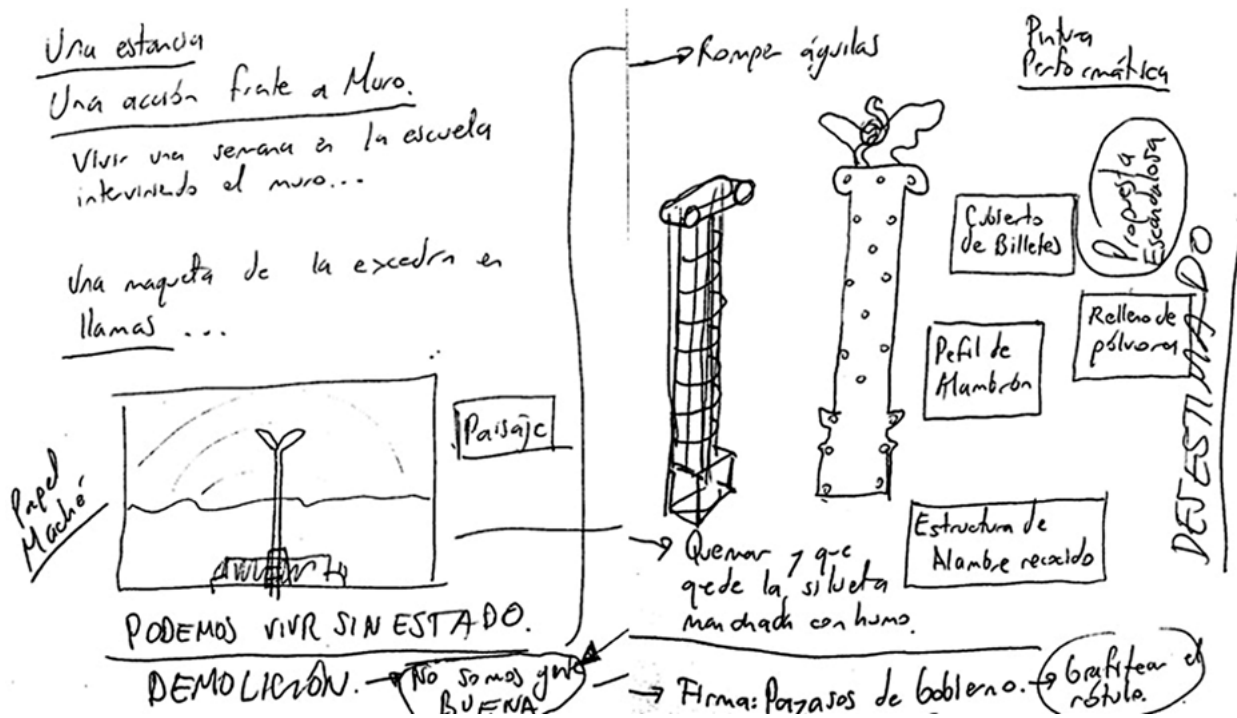 Una estancia
Una acción frente a Muro.
Vivir una semana en la escuela
interviniendo el muro...
Una maqueta de la excedra en
llamas ...
Paisaje
Papel
Maché
PODEMOS VIVIR SIN ESTADO.
DEMOLICIÓN.
No somos gente
BUENA
Romper águilas
Pintura
Performática
Propuesta
Escandalosa
Cubierto
de Billetes
Relleno de
pólvora
Perfil de
Alambrón
DESESTIMADO
Estructura de
Alambre recocido
Quemar y que
quede la silueta
manchada con humo.
Firma: Payasos de Gobierno.
Grafitear el
rótulo.